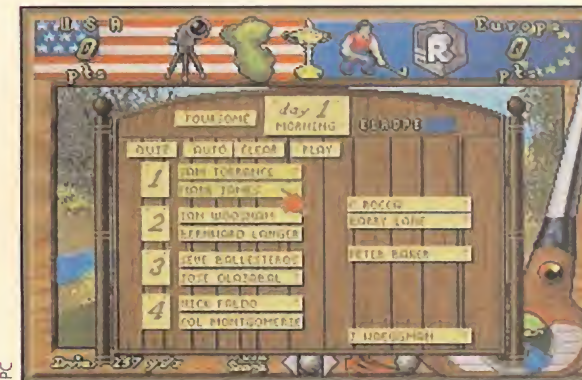 USA
0
pts
Europe
0
pts
R
FOURSOME
day 1
MORNING
EUROPE
QUIT AUTO CLEAR PLAY
1
SAM TORRANCE
MARK JAMES
2
IAN WOOSNAM
BERNHARD LANGER
3
SEVE BALLESTEROS
JOSE OLAZABAL
4
NICK FALDO
COL MONTGOMERIE
C ROCCA
BARRY LANE
PETER BAKER
J HAEGGMAN
PC